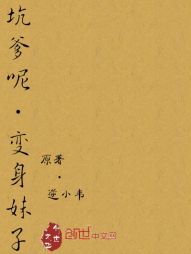 坑爹呢·变身妹子
原著
·
逆小韦
创世中文网